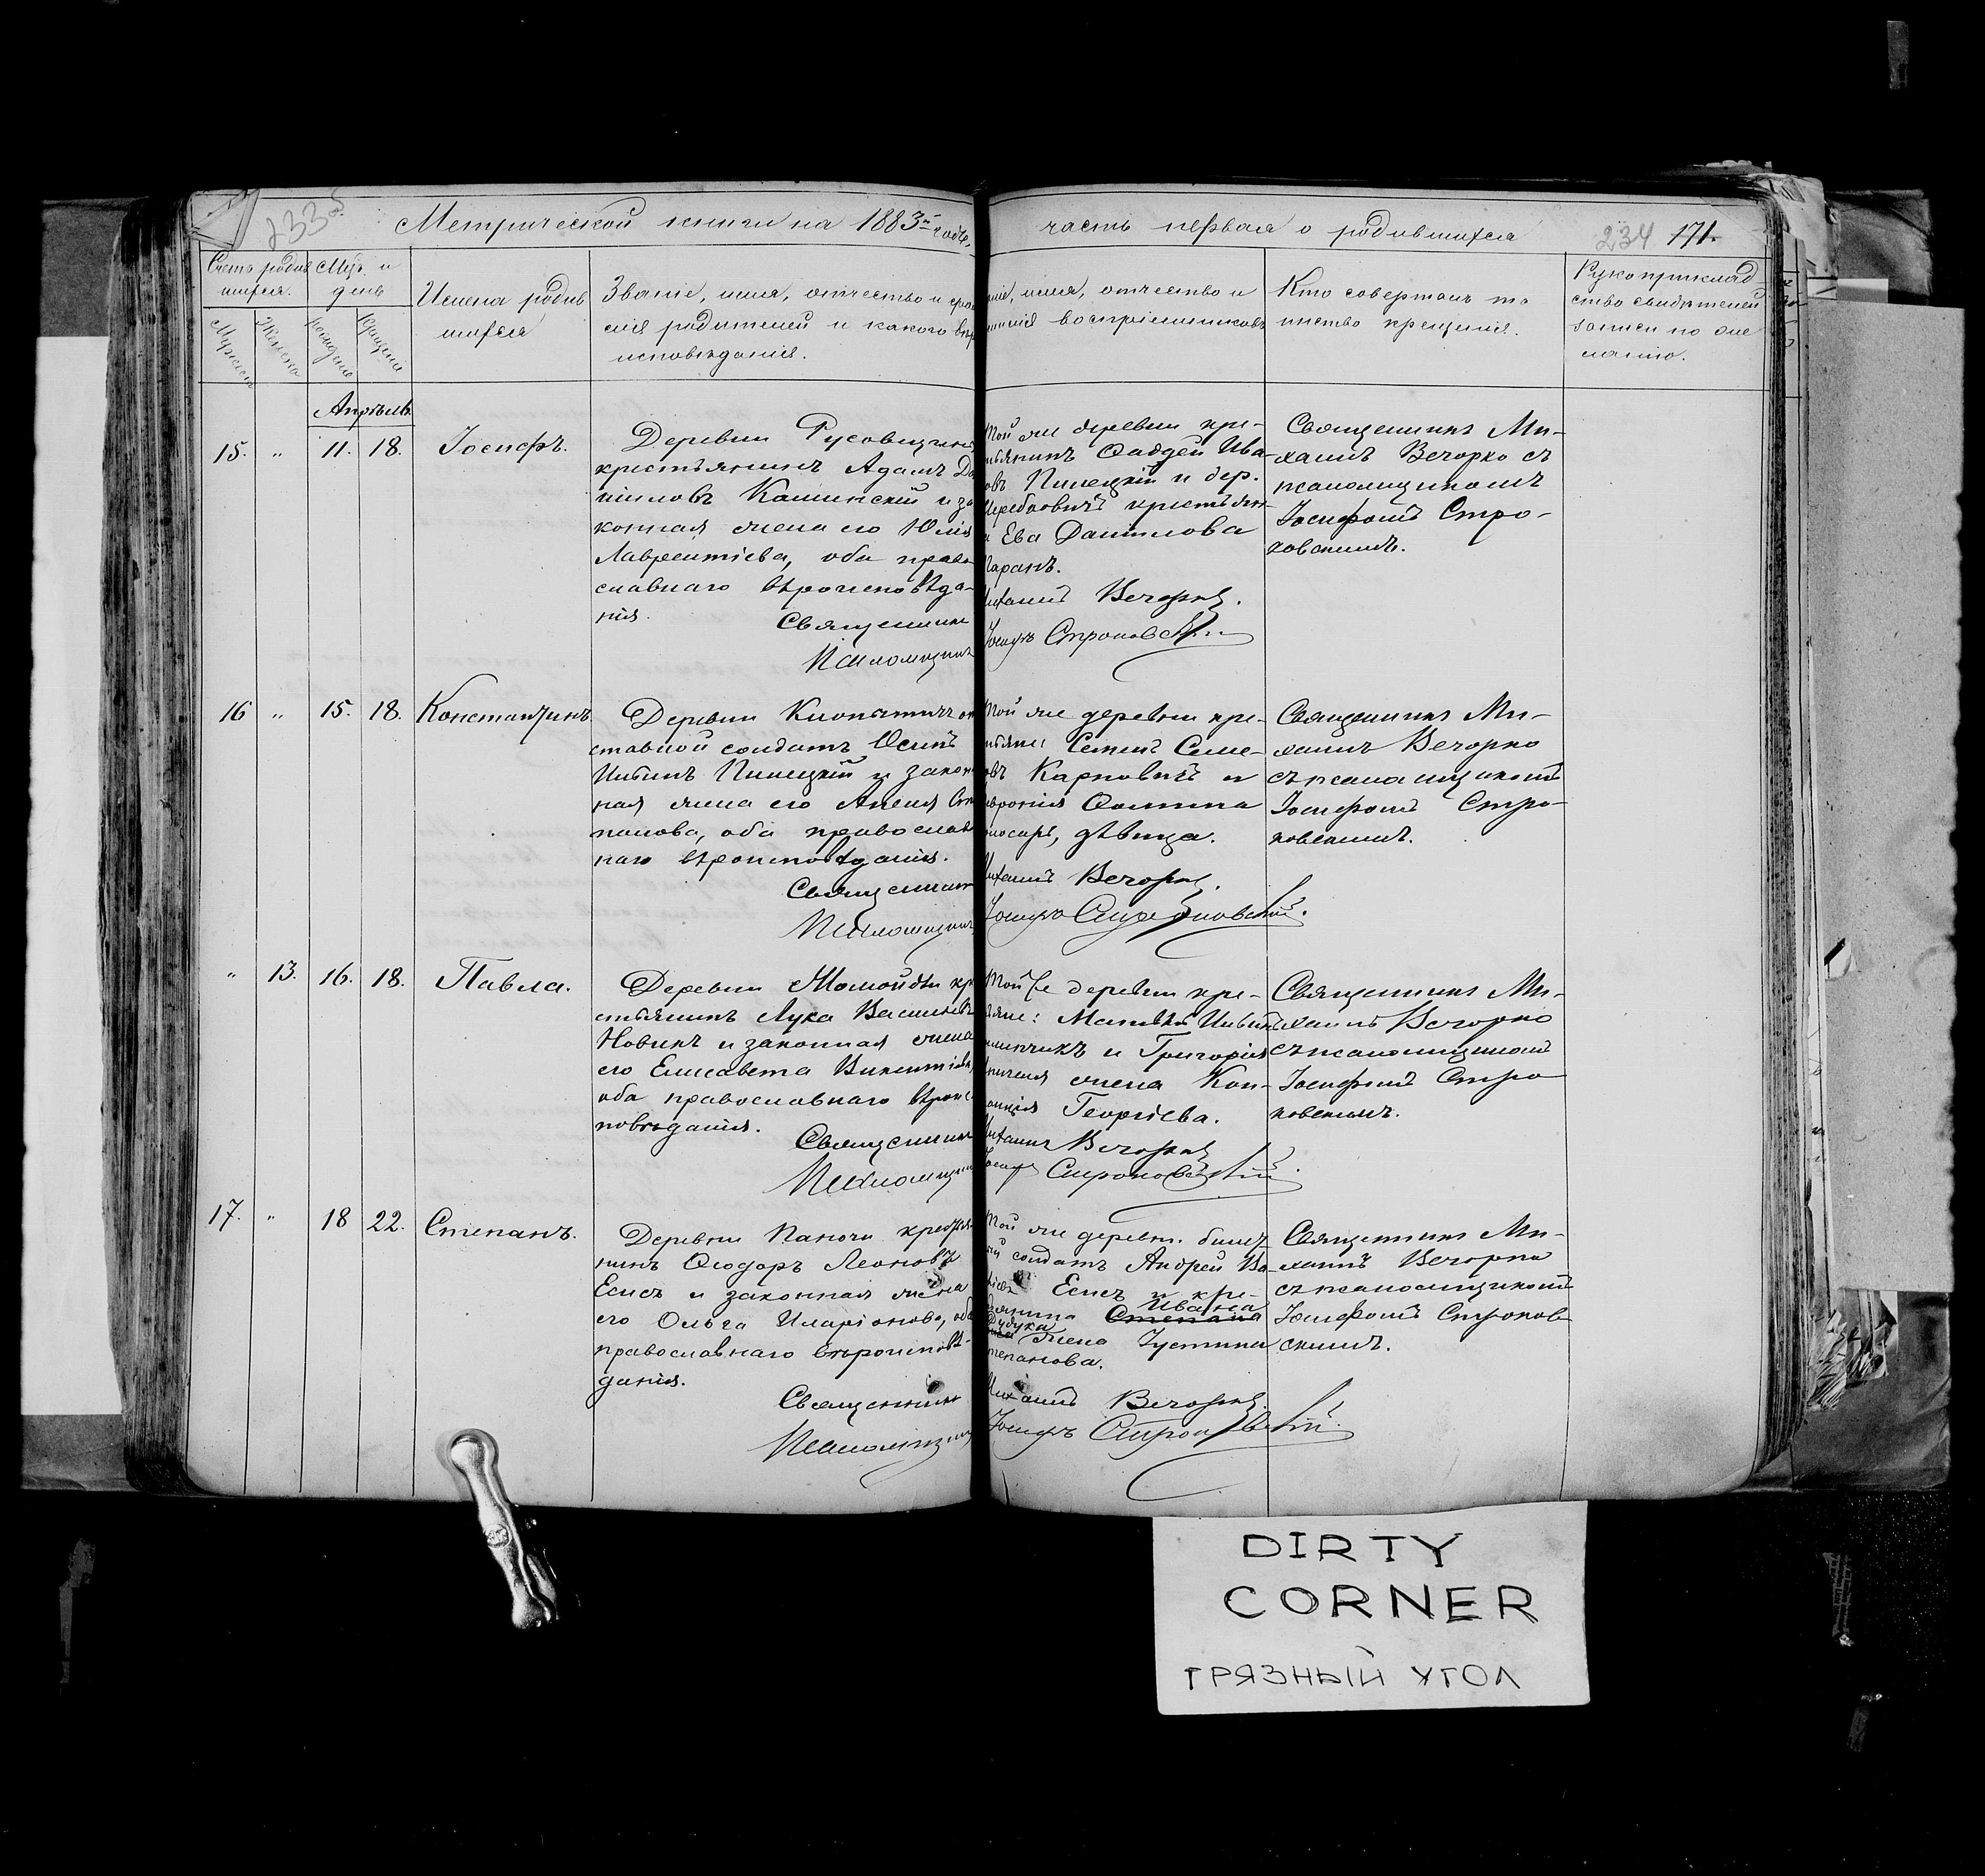 Метрической книги на 1883й годъ,
часть первая о родившихся
234 171.
Счетъ родив
шихся.
Мѣс. и
день
Мужеск
Женска
рожденiе
Крещенiе
Имена родив
шихся
Званiе, имя, отчество и
лiя родителей и какого
исповѣданiя.
имя, отчество и
воспрiемниковъ
Кто совершалъ та
инство крещенiя.
Рукоприклад
ство свидѣтелей
записи по же
ланiю.
Апрѣль
15. " 11. 18. Iосифъ.
Деревни
крестьянинъ Адамъ Да
ниловъ Каминскiй и за
конная жена его Юлiя
Лаврентiева, оба право
славнаго вѣроисповѣда-
нiя.
Священник
Псаломщикъ
той же деревни кре-
Фаддей Ива-
овъ Пилецкiй и дер.
крестьян
Ева Данилова
Михаилъ Вечорко.
Iосифъ Строковскiй
Священникъ Ми-
хаилъ Вечорко съ
псаломщикомъ
Iосифомъ Стро-
ковскимъ.
16 " 15. 18. Константинъ.
Деревни
ставной солдатъ Осипъ
Пилецкiй и закон
ная жена его Анеля Сте
панова, оба православ
наго вѣроисповѣданiя.
Священник
Псаломщикъ
той же деревни кре-
Семенъ Семе-
овъ Карповичъ и
Фомина
дѣвица.
Михаилъ Вечорко.
Iосифъ Строковскiй.
Священникъ Ми-
хаилъ Вечорко
съ псаломщикомъ
Iосифомъ Стро-
ковскимъ.
" 13. 16. 18. Павла.
Деревни Жомойдь кр
стьянинъ Лука Васильевъ
Новикъ и законная жена
его Елисавета Викентiева,
оба православнаго вѣроис
повѣданiя.
Священник
Псаломщик
той же деревни кре-
Матвѣй
и Григорiя
жена Кон-
Георгiева.
Михаилъ Вечорко
Iосифъ Строковскiй.
Священникъ Ми-
хаилъ Вечорко
съ псаломщикомъ
Iосифомъ Стро
ковскимъ.
17. " 18 22. Степанъ.
Деревни крестья
нинъ Ѳеодоръ Леоновъ
Есисъ и законная жена
его Ольга Иларiонова, оба
православнаго вѣроисповѣ-
данiя.
Священник
Псаломщик
той же деревн. билет
ый солдатъ Андрей Ва
Есисъ и кре-
Ивана
Степана
жена Iустина
тепанова.
Михаилъ Вечорко.
Iосифъ Строковскiй.
Священникъ Ми-
хаилъ Вечорко
съ псаломщикомъ
Iосифомъ Строков-
скимъ.
DIRTY
CORNER
ГРЯЗНЫЙ УГОЛ